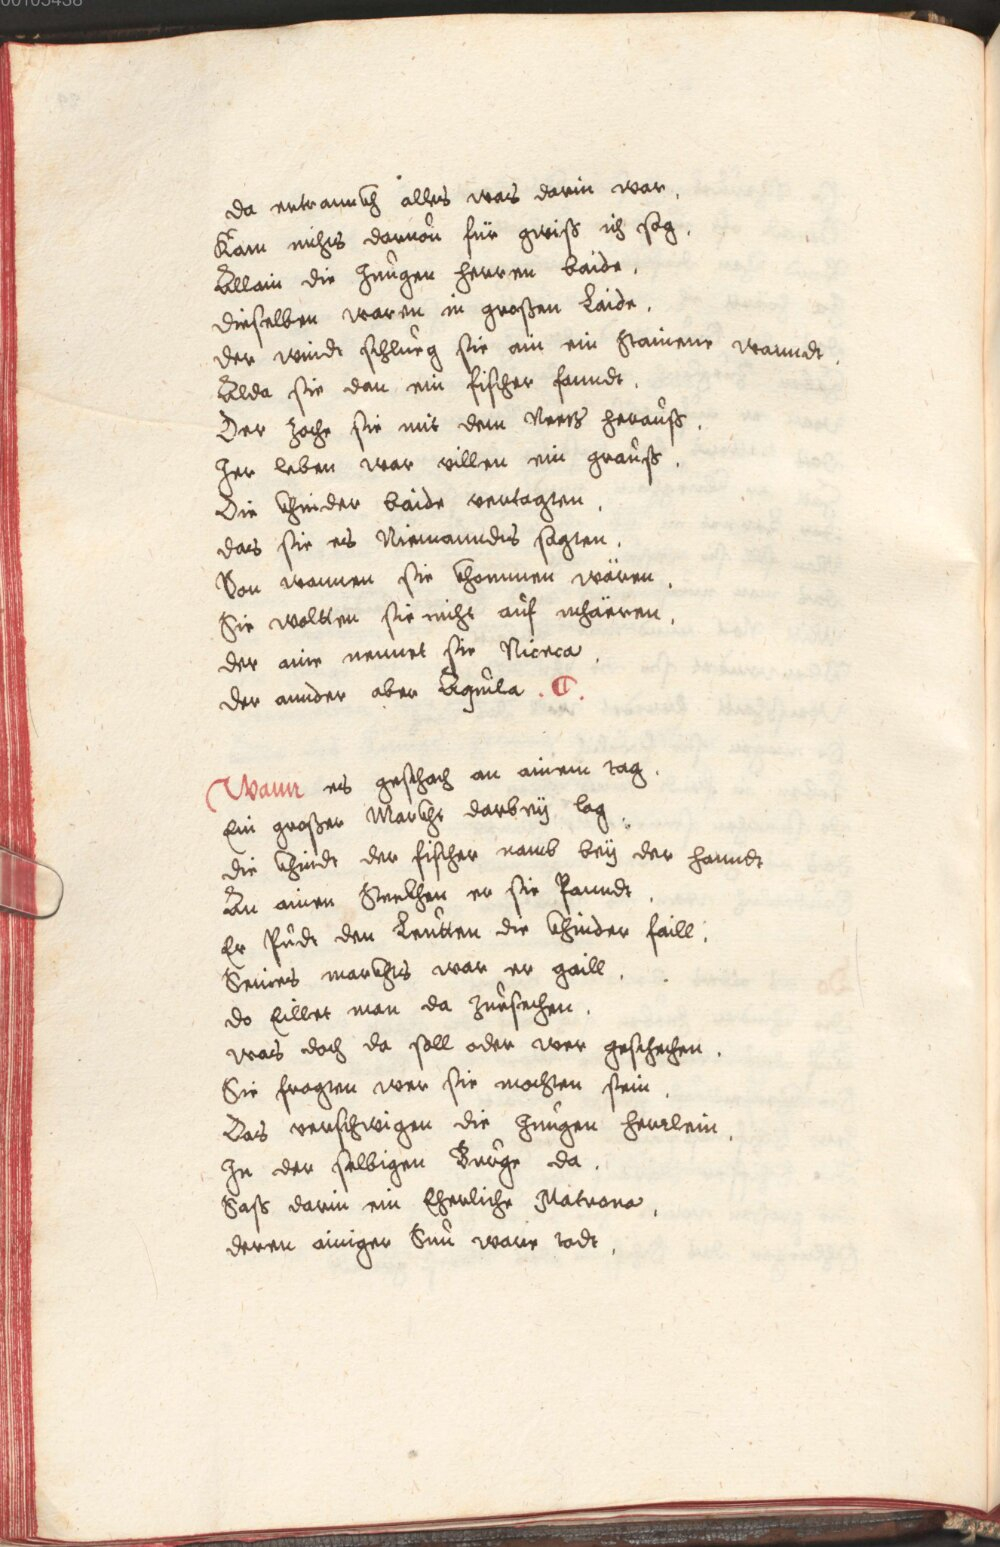 00105438
da ertrannckh alles was darin war.
Kam nichts daruon für gwiß ich sag.
Allain die Jungen herren baide.
dieselben waren in großen Laide.
der windt schlueg sie an ein Stainene wanndt.
Alda sie dan ein fischer fanndt.
Der zoche sie mit dem Neetz herauß.
Jer leben war villen ein grauß.
Die khinder baide vertagten.
das sie es Niemanndts sagten.
Von wannen sie khommen wären.
Sie woltten sie nicht auf mhäeren.
der aine nennet sie Niceca.
der annder aber Aquila. C.
Wann es geschach an ainem tag.
Ein großer Marckht darbeÿ lag.
die khindt der fischer namb beÿ der hanndt
An ainen Strickhen er sie Panndt.
Er Pudt den Leutten die khinder faill.
Seines marckhts war er gaill.
do Eillet man da zuesechen.
was doch da soll oder wer geschechen.
Sie fragten wer sie mochten sein.
Das verschwigen die Jungen herrlein.
In der selbigen Burge da.
Saß darin ein Eherliche Matrona.
deren ainiger Sun ware todt.